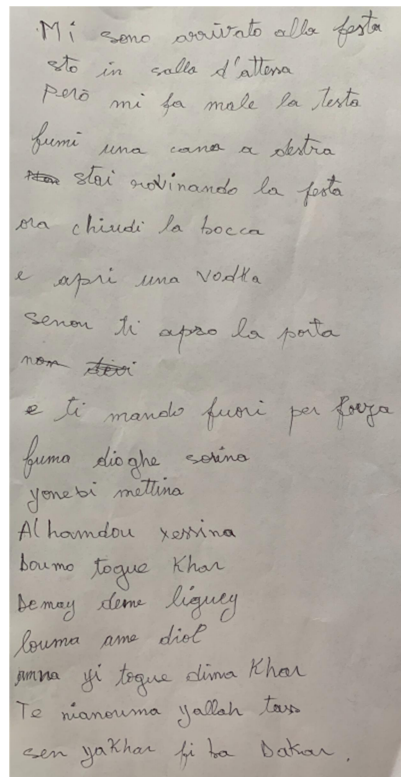 Mi sono arrivato alla festa
sto in salla d'attesa
Però mi fa male la testa
fumi una cana a destra
stai rovinando la festa
ora chiudi la bocca
e apri una vodka
senon ti apro la porta
non
e ti mando fuori per forza
fuma dioghe sorina
yonebi mettina
Alhamdou xessina
Doumo togue Khar
Demay deme liguey
louma ame diol
amna yi togue dima Khar
Te nianouma yallah tass
sen yaKhar fi ba Dakar.